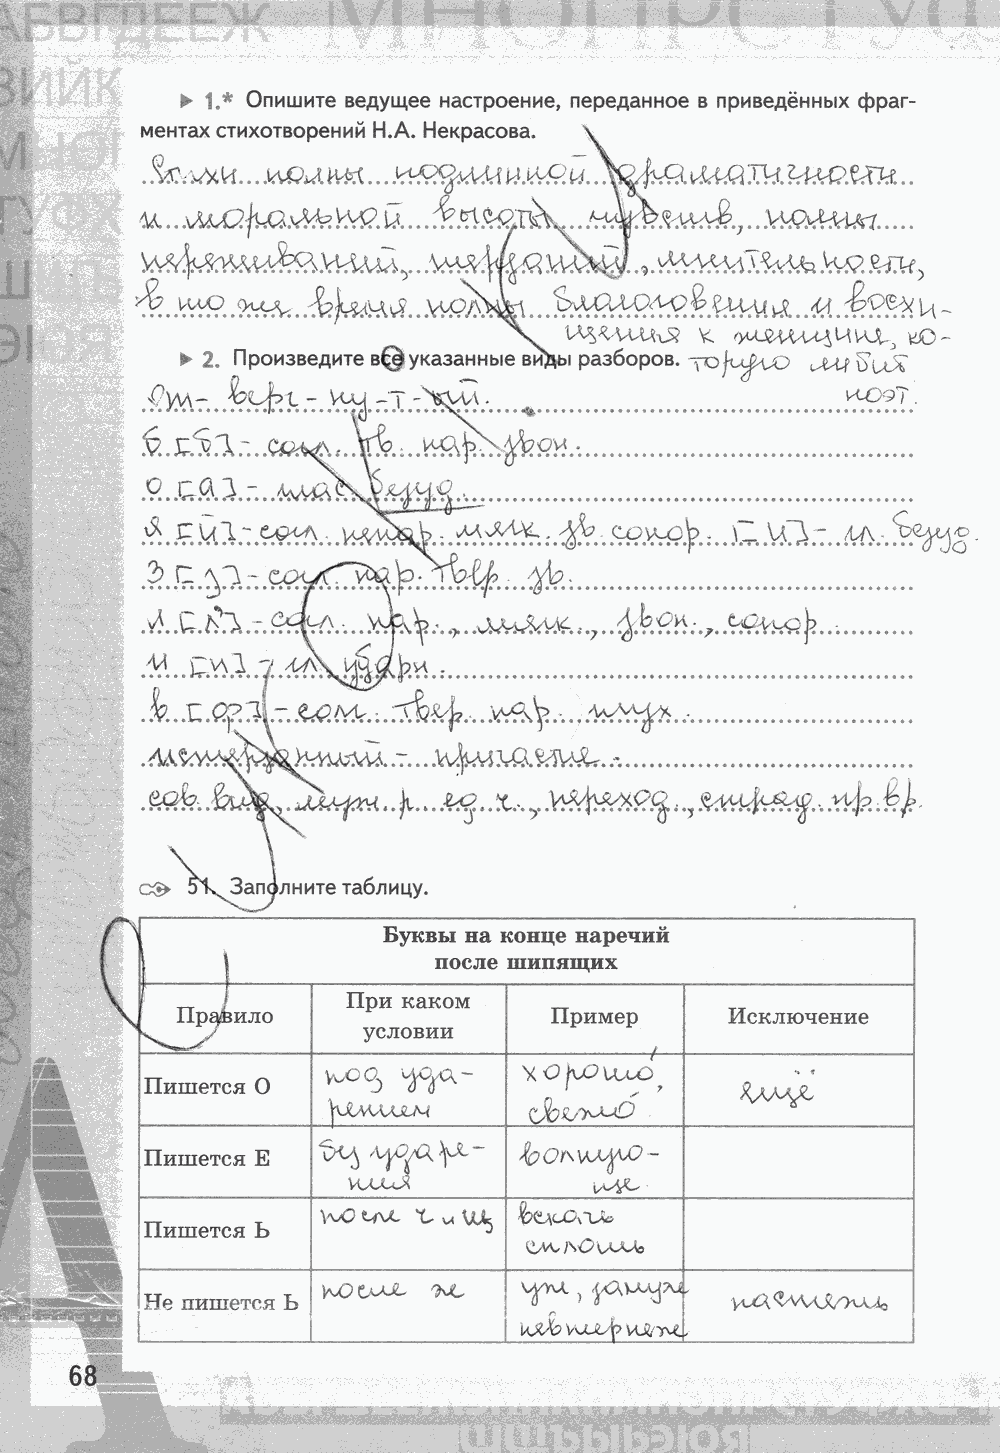 АБВГДЕЕЖ
ЗИЙК
1.* Опишите ведущее настроение, переданное в приведённых фраг-
ментах стихотворений Н.А. Некрасова.
Стихи полны подлинной драматичности
и моральной высоты чувств, полны
переживаний, терзаний, мнительности,
в то же время полны благоговения и восхи-
щения к женщине, ко-
2. Произведите все указанные виды разборов. торую любит
поэт.
От-верг-ну-т-ый.
б [б] - согл. тв. пар. звон.
о [а] - глас. безуд.
я [й] - согл. непар. мягк. зв. сонор. [и] - гл. безуд.
з [з] - согл. пар. твёр. зв.
л [л'] - согл. пар., мягк., звон., сонор.
и [и] - гл. ударн.
в [ф] - согл. твер. пар. глух.
истерзанный - причастие.
сов. вид, муж. р. ед. ч., переход., страд. пр. вр.
51. Заполните таблицу.
Буквы на конце наречий
после шипящих
Правило При каком условии Пример Исключение
Пишется О под уда-рением хорошо́, свежо́ ещё
Пишется Е без ударе-ния волную-ще
Пишется Ь после ч и ш вскачь сплошь
Не пишется Ь после ж уж, замуж невтерпеж настежь
68